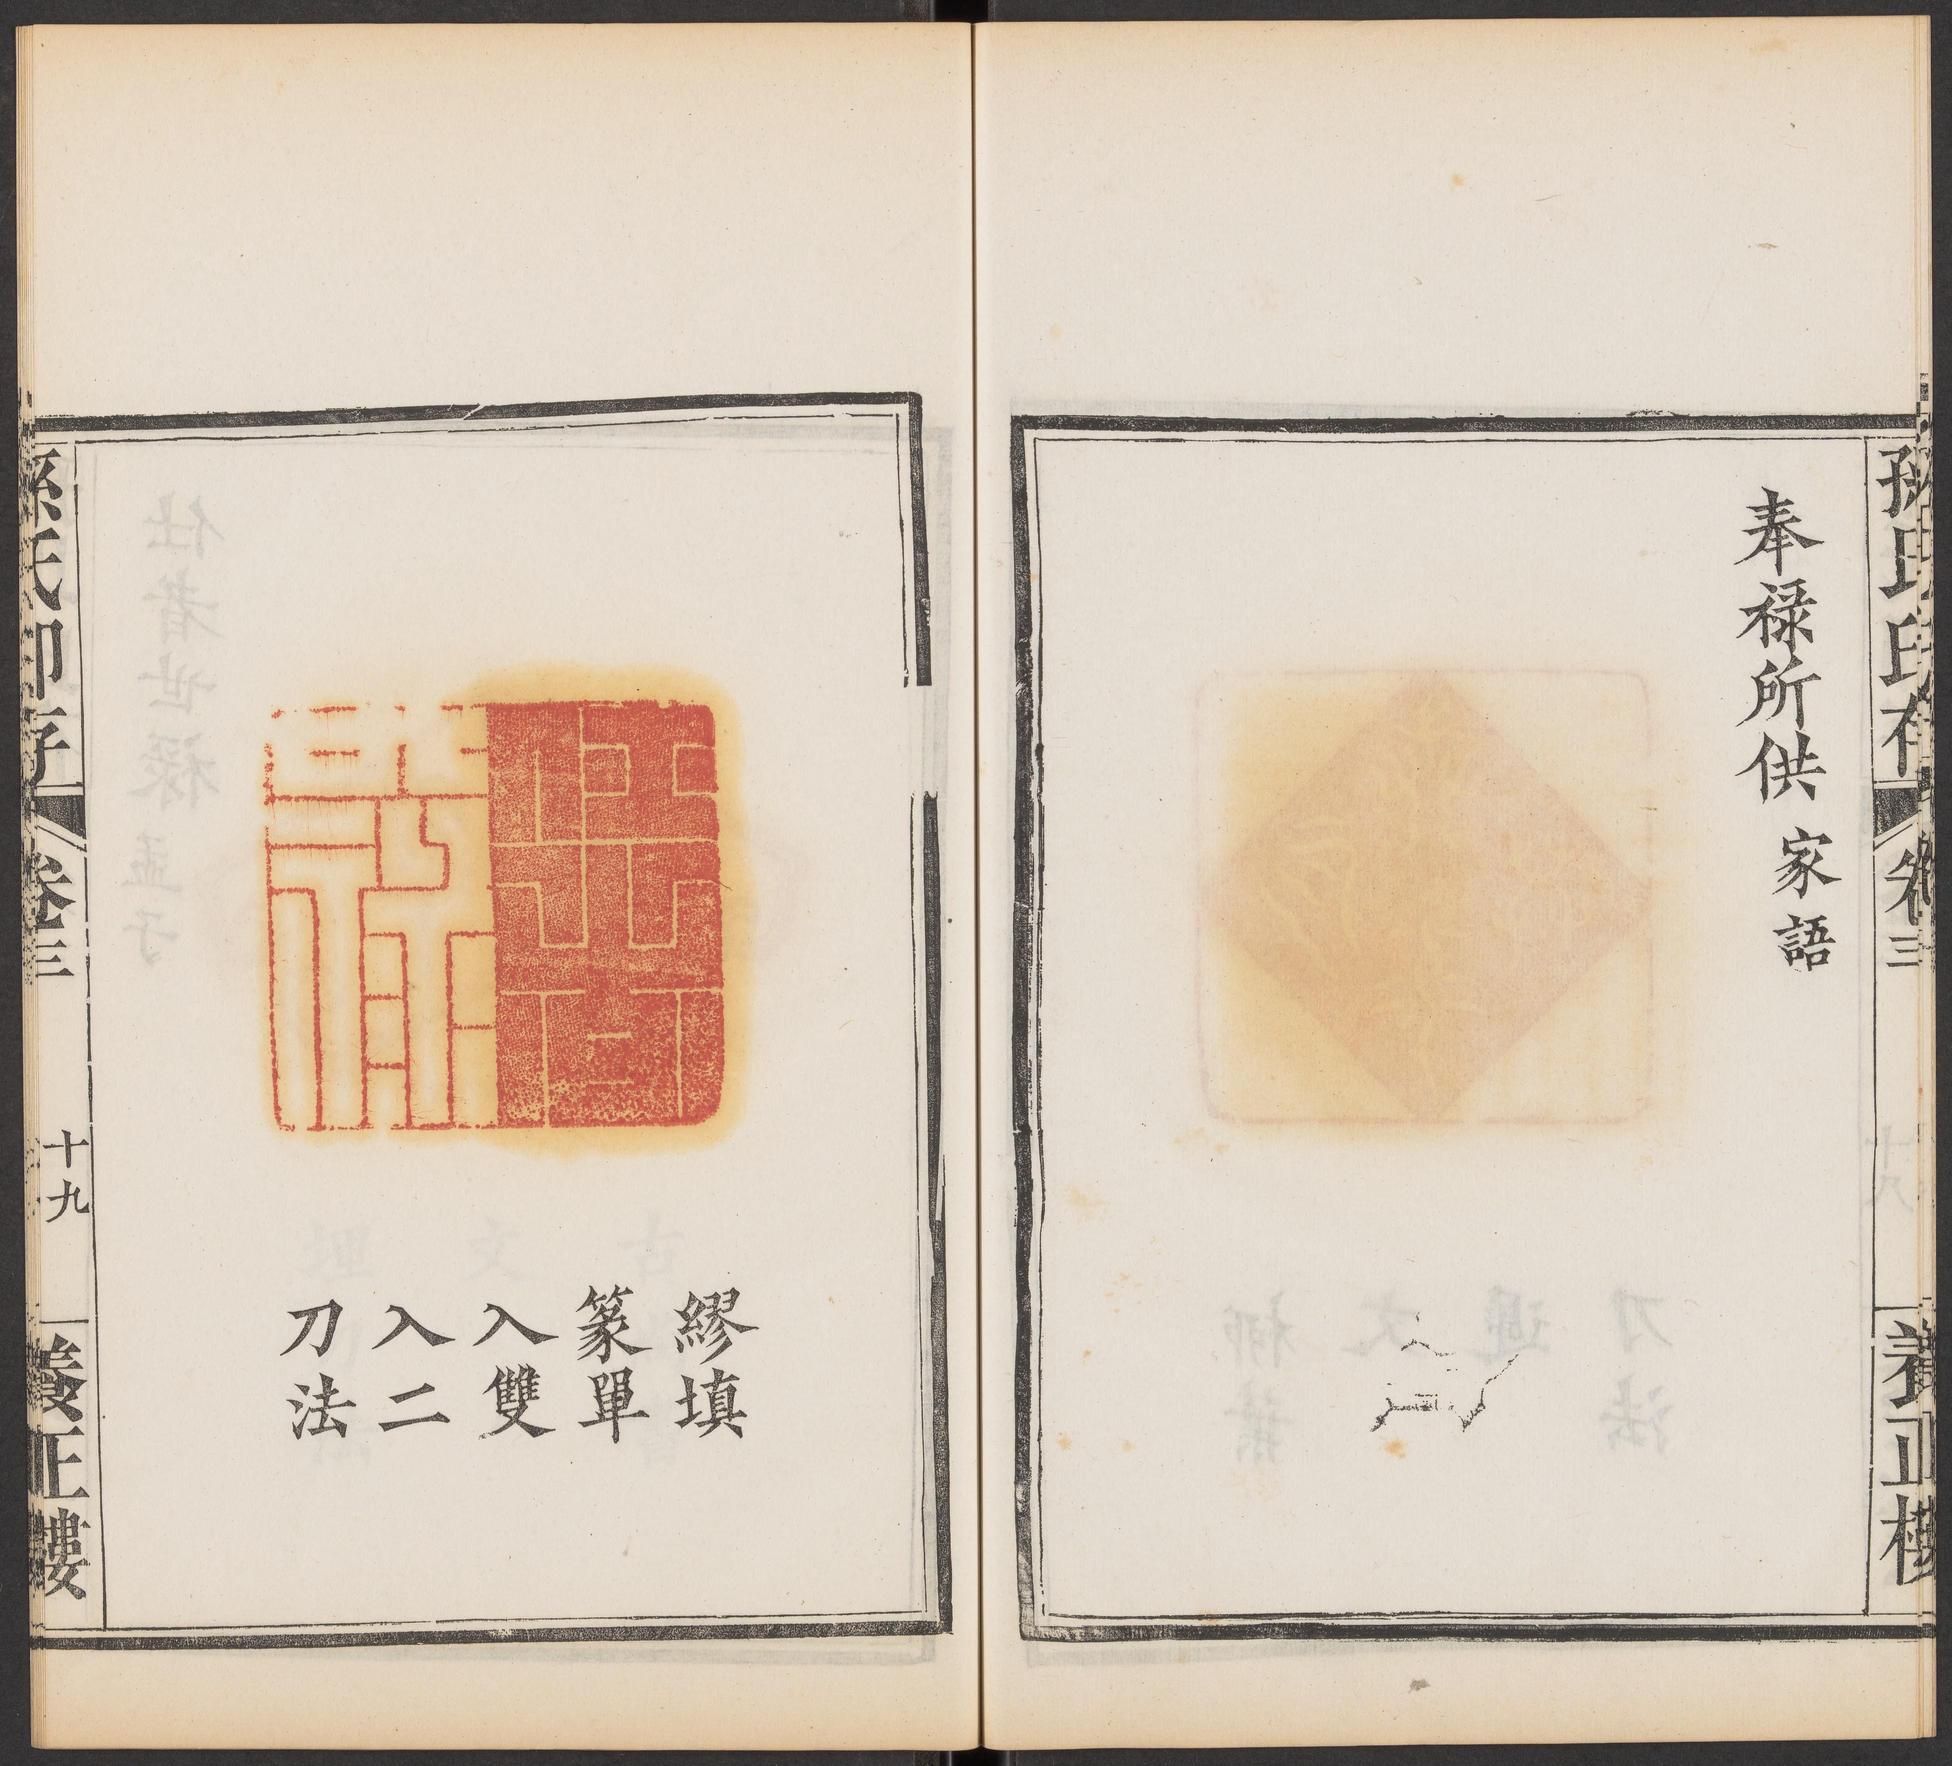 孫氏印存
卷三
養正樓
奉祿所供 家語
繆填
篆單
入雙
入二
刀法
孫氏印存
卷三
十九
養正樓